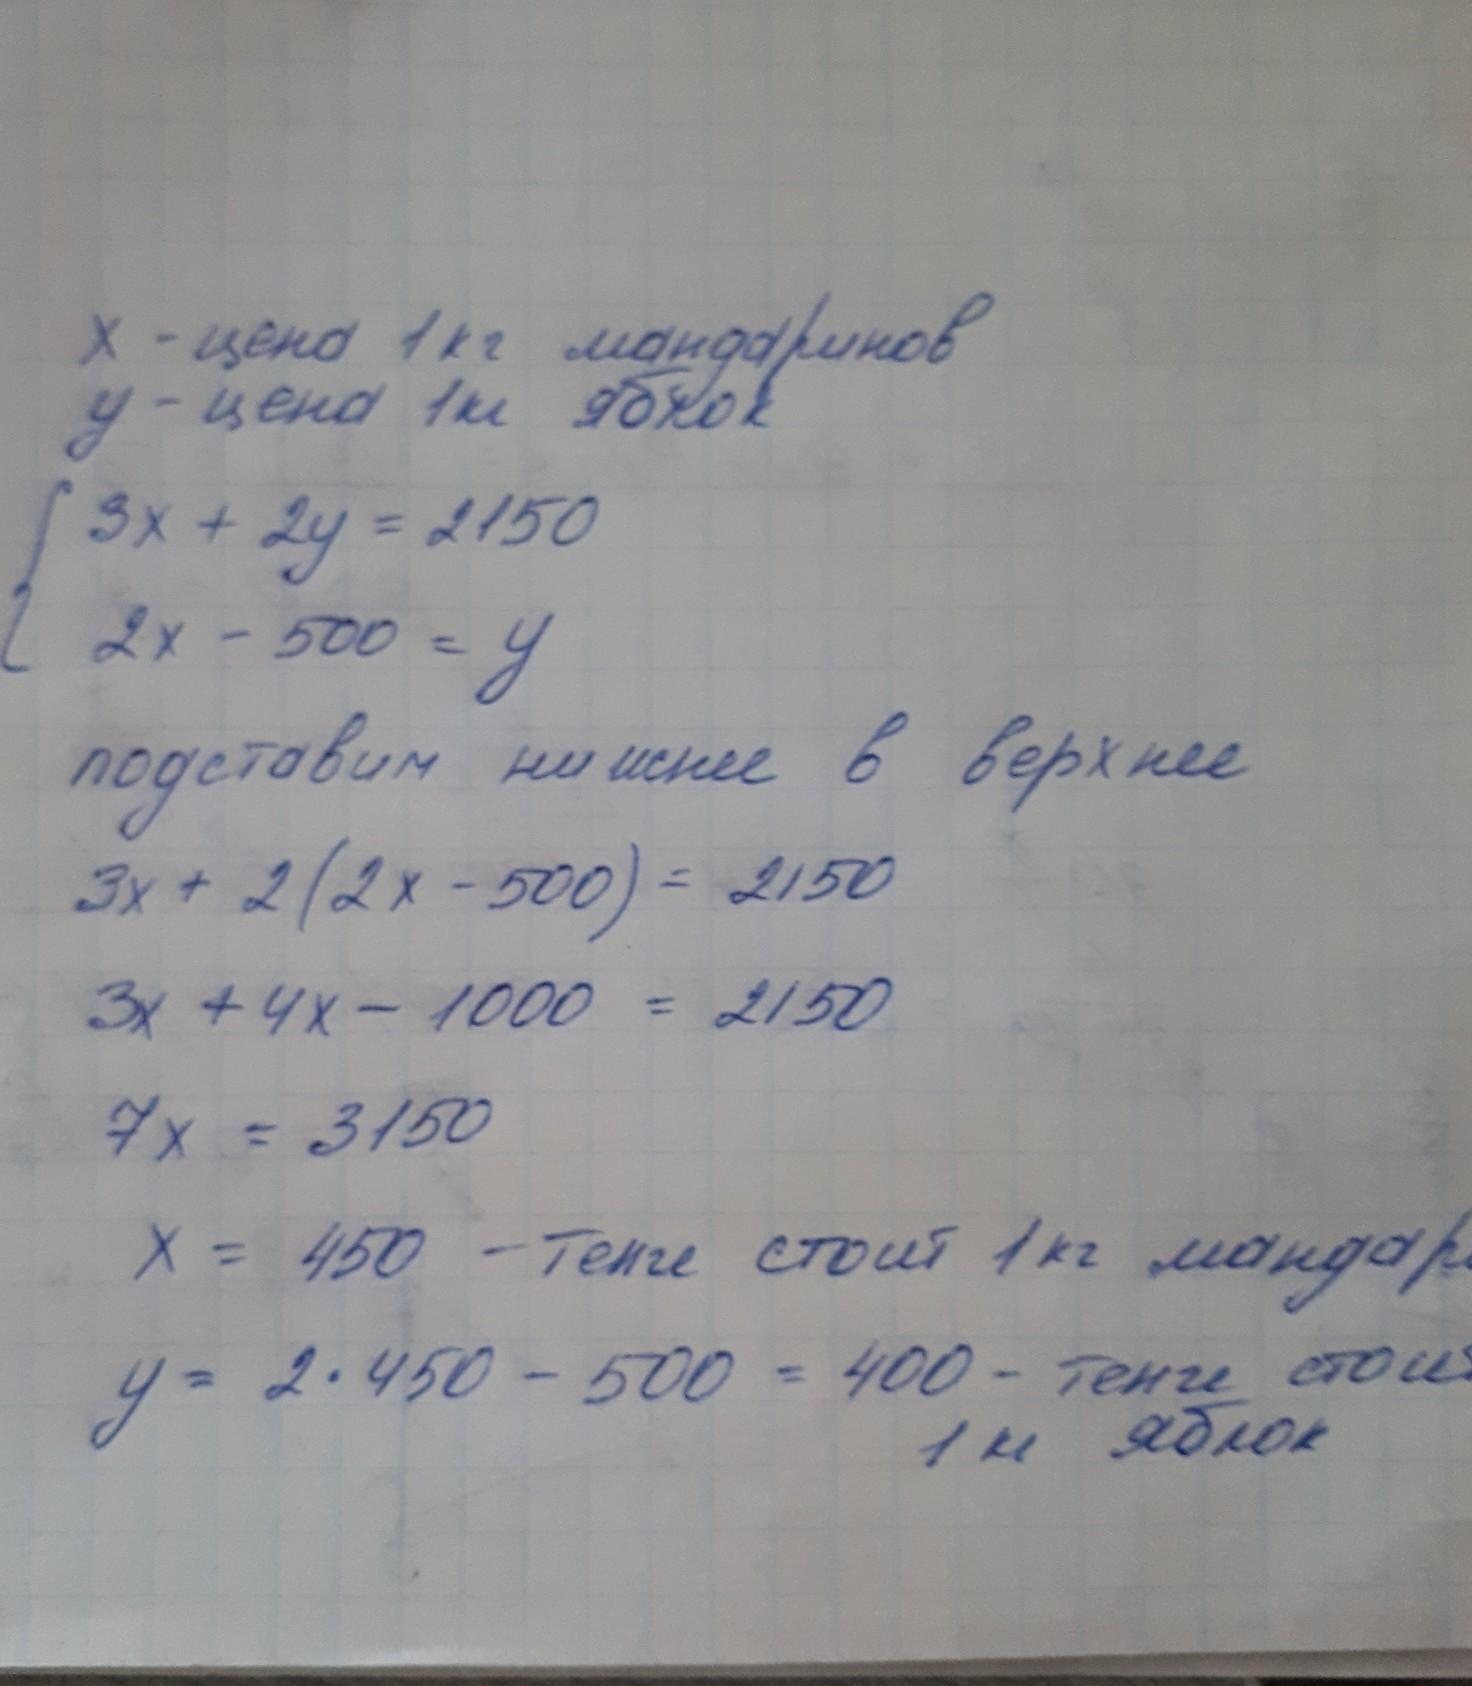 x - цена 1 кг мандаринов
y - цена 1 кг яблок
3x + 2y = 2150
2x - 500 = y
подставим нижнее в верхнее
3x + 2(2x - 500) = 2150
3x + 4x - 1000 = 2150
7x = 3150
x = 450 - тенге стоит 1 кг мандари
y = 2·450 - 500 = 400 - тенге стоит
1 кг яблок